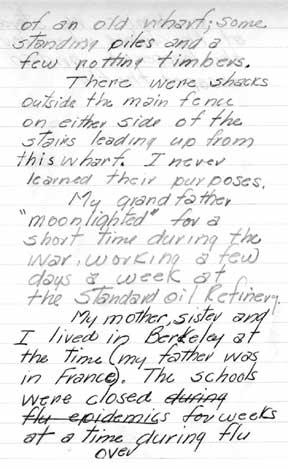 of an old wharf; some
standing piles and a
few rotting timbers.
There were shacks
outside the main fence
on either side of the
stairs leading up from
this wharf. I never
learned their purposes.
My grandfather
"moonlighted" for a
short time during the
war, working a few
days a week at
the Standard Oil Refinery.
My mother, sister and
I lived in Berkeley at
the time (my father was
in France). The schools
were closed during
flu epidemics for weeks
at a time during flu
over